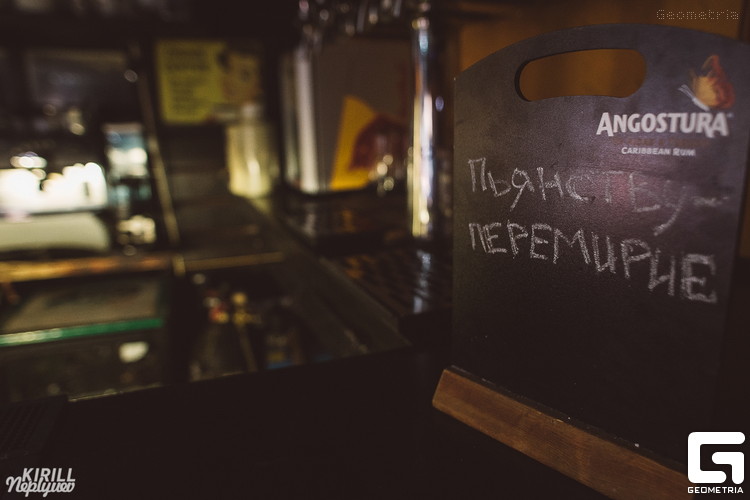 Geometria
ANGOSTURA
CARIBBEAN RUM
ПЬЯНСТВУ –
ПЕРЕМИРИЕ
KIRILL
Neptynev
GEOMETRIA